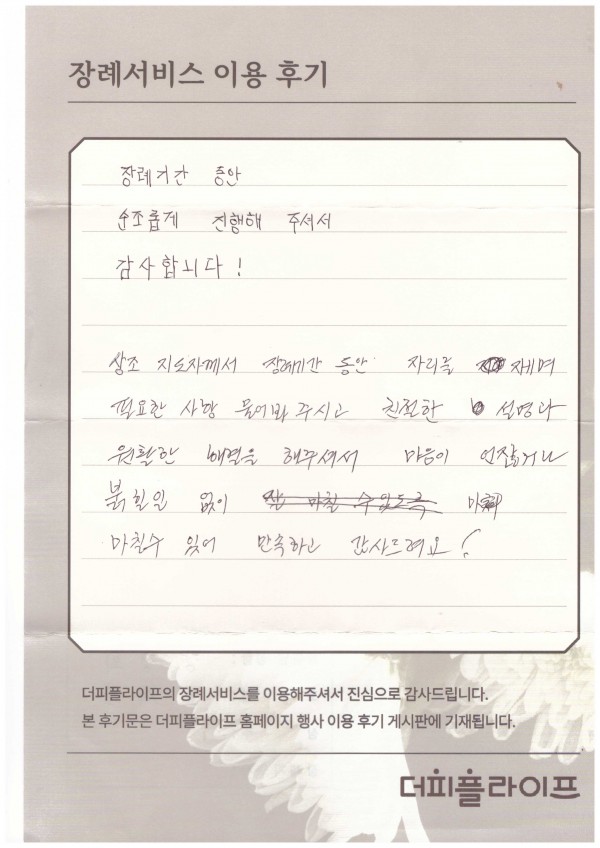 장례서비스 이용 후기
장례기간 동안
순조롭게 진행해 주셔서
감사합니다!
상조 지도자께서 장례기간 동안 자리를 지새며
필요한 사항 물어봐 주시고 친절한 설명과
원활한 해결을 해주셔서 마음이 언잖거나
붉힐일 없이 잘 마칠 수 있도록
마칠수 있어 만속하고 감사드려요!
더피플라이프의 장례서비스를 이용해주셔서 진심으로 감사드립니다.
본 후기문은 더피플라이프 홈페이지 행사 이용 후기 게시판에 기재됩니다.
더피플라이프